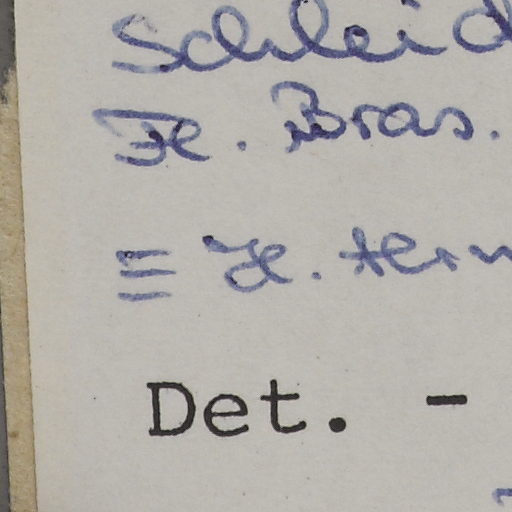 Schleid
Fl. Bras.
≡ H. tern
Det. -